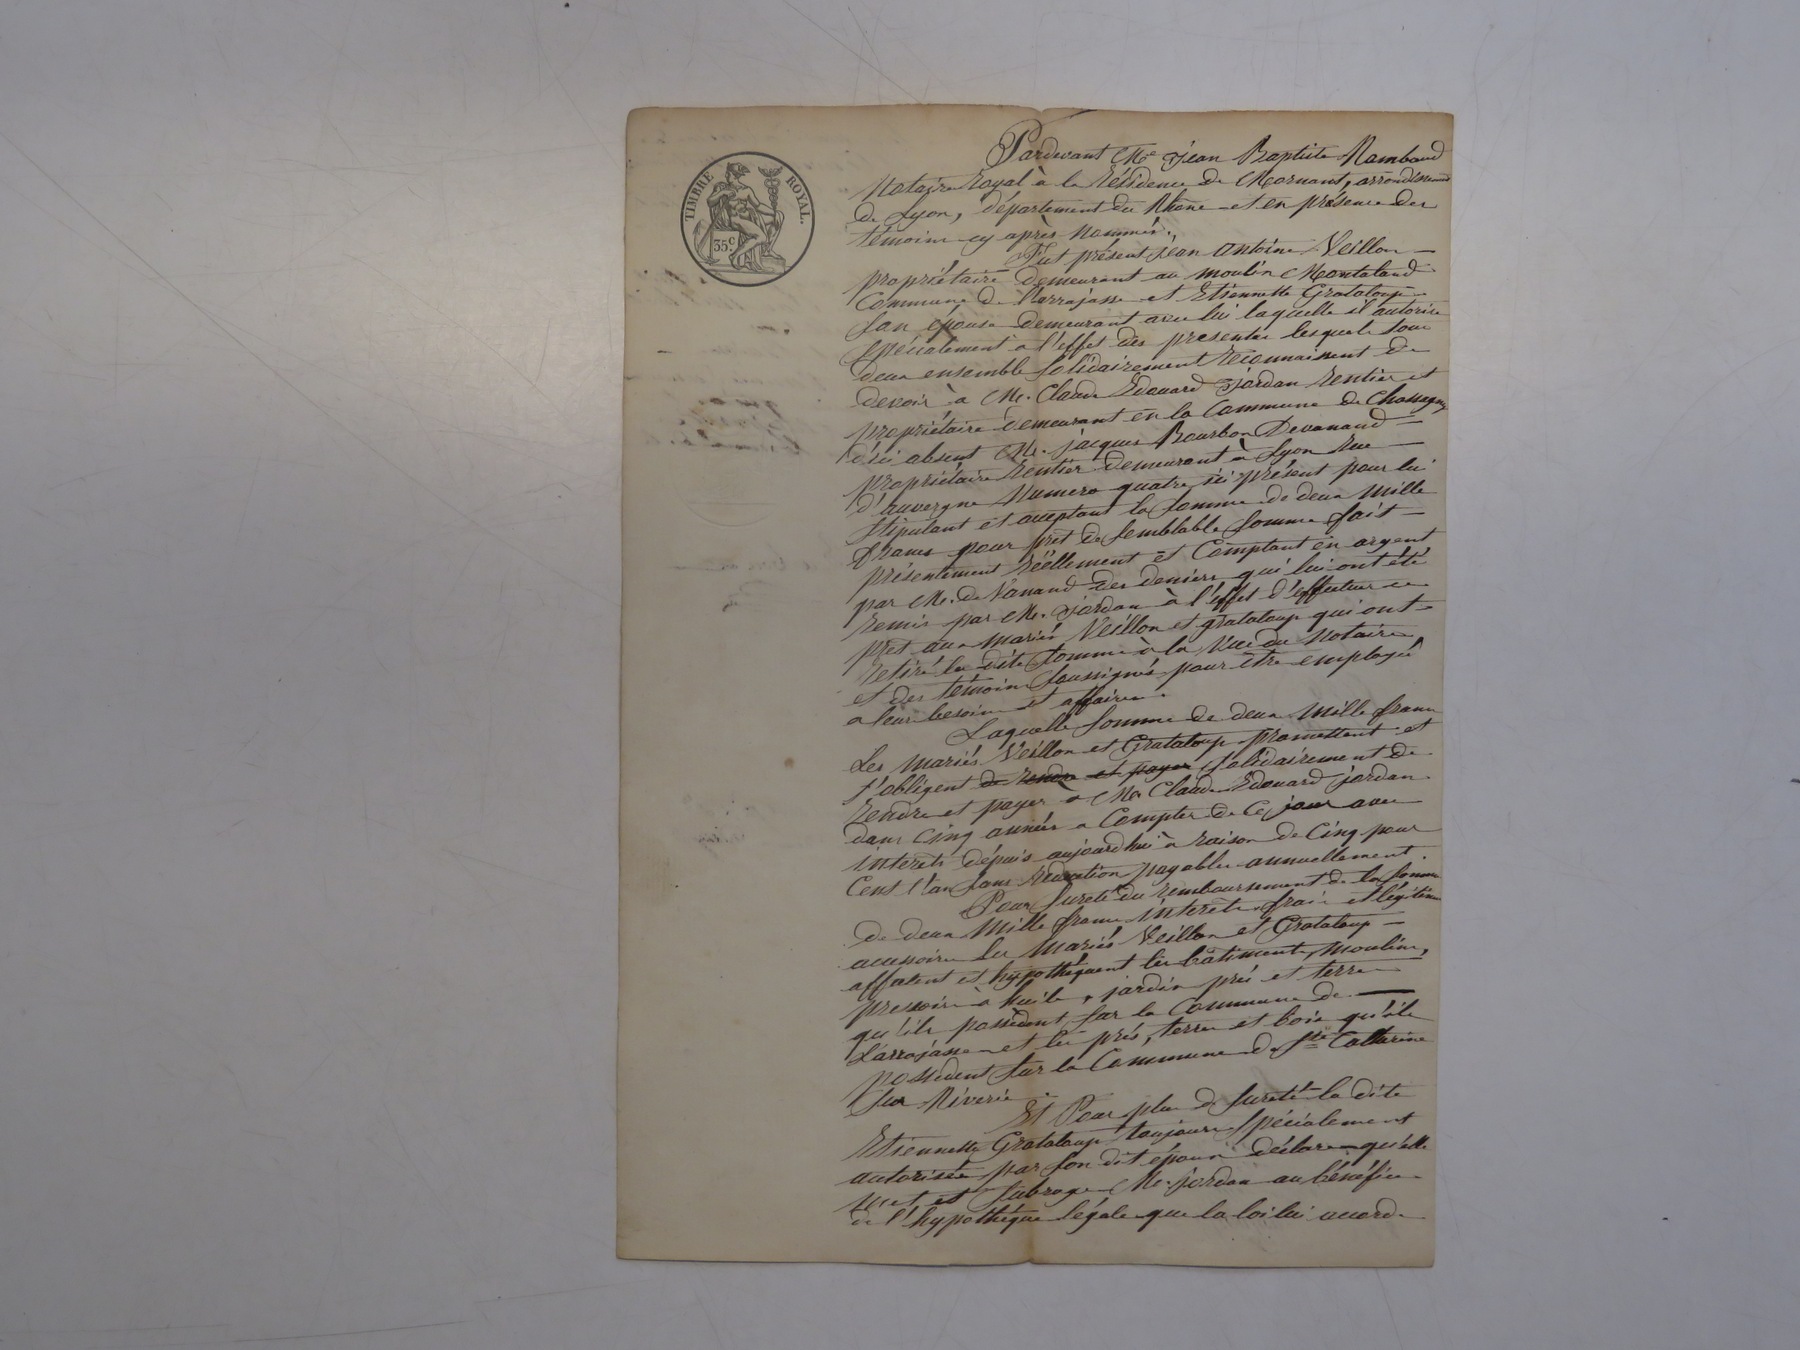 TIMBRE ROYAL.
35c
Pardevant Me Jean Baptiste Rambaud
Notaire Royal à la Résidence de Mornant, arrondissement
de Lyon, département du Rhône et en présence des
témoins cy après nommés.
Fut présent Jean Antoine Veillon
propriétaire demeurant au moulin Montaland
Commune de Larrajasse et Etiennette Grataloup
son épouse demeurant avec lui laquelle il autorise
spécialement à l'effet des presentes lesquels tous
deux ensemble solidairement Reconnaissent de
devoir à Mr. Claude Edouard Jordan Rentier et
propriétaire demeurant en la Commune de Chassagny
d'ici absent Mr. Jacques Bourbon Devanand
propriétaire Rentier demeurant à Lyon Rue
d'auvergne Numero quatre, ici présent pour lui
stipulant et acceptant la somme de deux mille
francs pour prêt de semblable somme fait
présentement réellement et Comptant en argent
par Mr. de Vanand des deniers qui lui ont été
remis par Mr. Jordan à l'effet d'effectuer ce
prêt aux mariés Veillon et grataloup qui ont
retiré la dite somme à la vue du Notaire
et des témoins soussignés pour être employée
a leur besoins et affaires.
Laquelle somme de deux mille francs
Les mariés Veillon et Grataloup promettent et
s'obligent de rendre et payer solidairement de
Rendre et payer à Mr Claude Edouard Jordan
dans Cinq années a Compter de Ce jour avec
interets dépuis aujourdhui à raison de Cinq pour
Cent l'an sans reduction payables annuellement.
Pour sureté du remboursement de la somme
de deux mille francs interêts frais et légitimes
accessoires les mariés Veillon et Grataloup
affectent et hypothèquent les bâtiments, moulins,
pressoirs à huile, jardin prés et terres
qu'ils possèdent sur la Commune de
Larrajasse et les prés, terres et bois qu'ils
possèdent sur la Commune de Ste Catherine
sur Riverie.
Et Pour plus de sureté la dite
Etiennette Grataloup toujours spécialement
autorisée par son dit époux déclare qu'elle
met et subroge Mr. Jordan au bénéfice
de l'hypothèque légale que la loi lui accorde